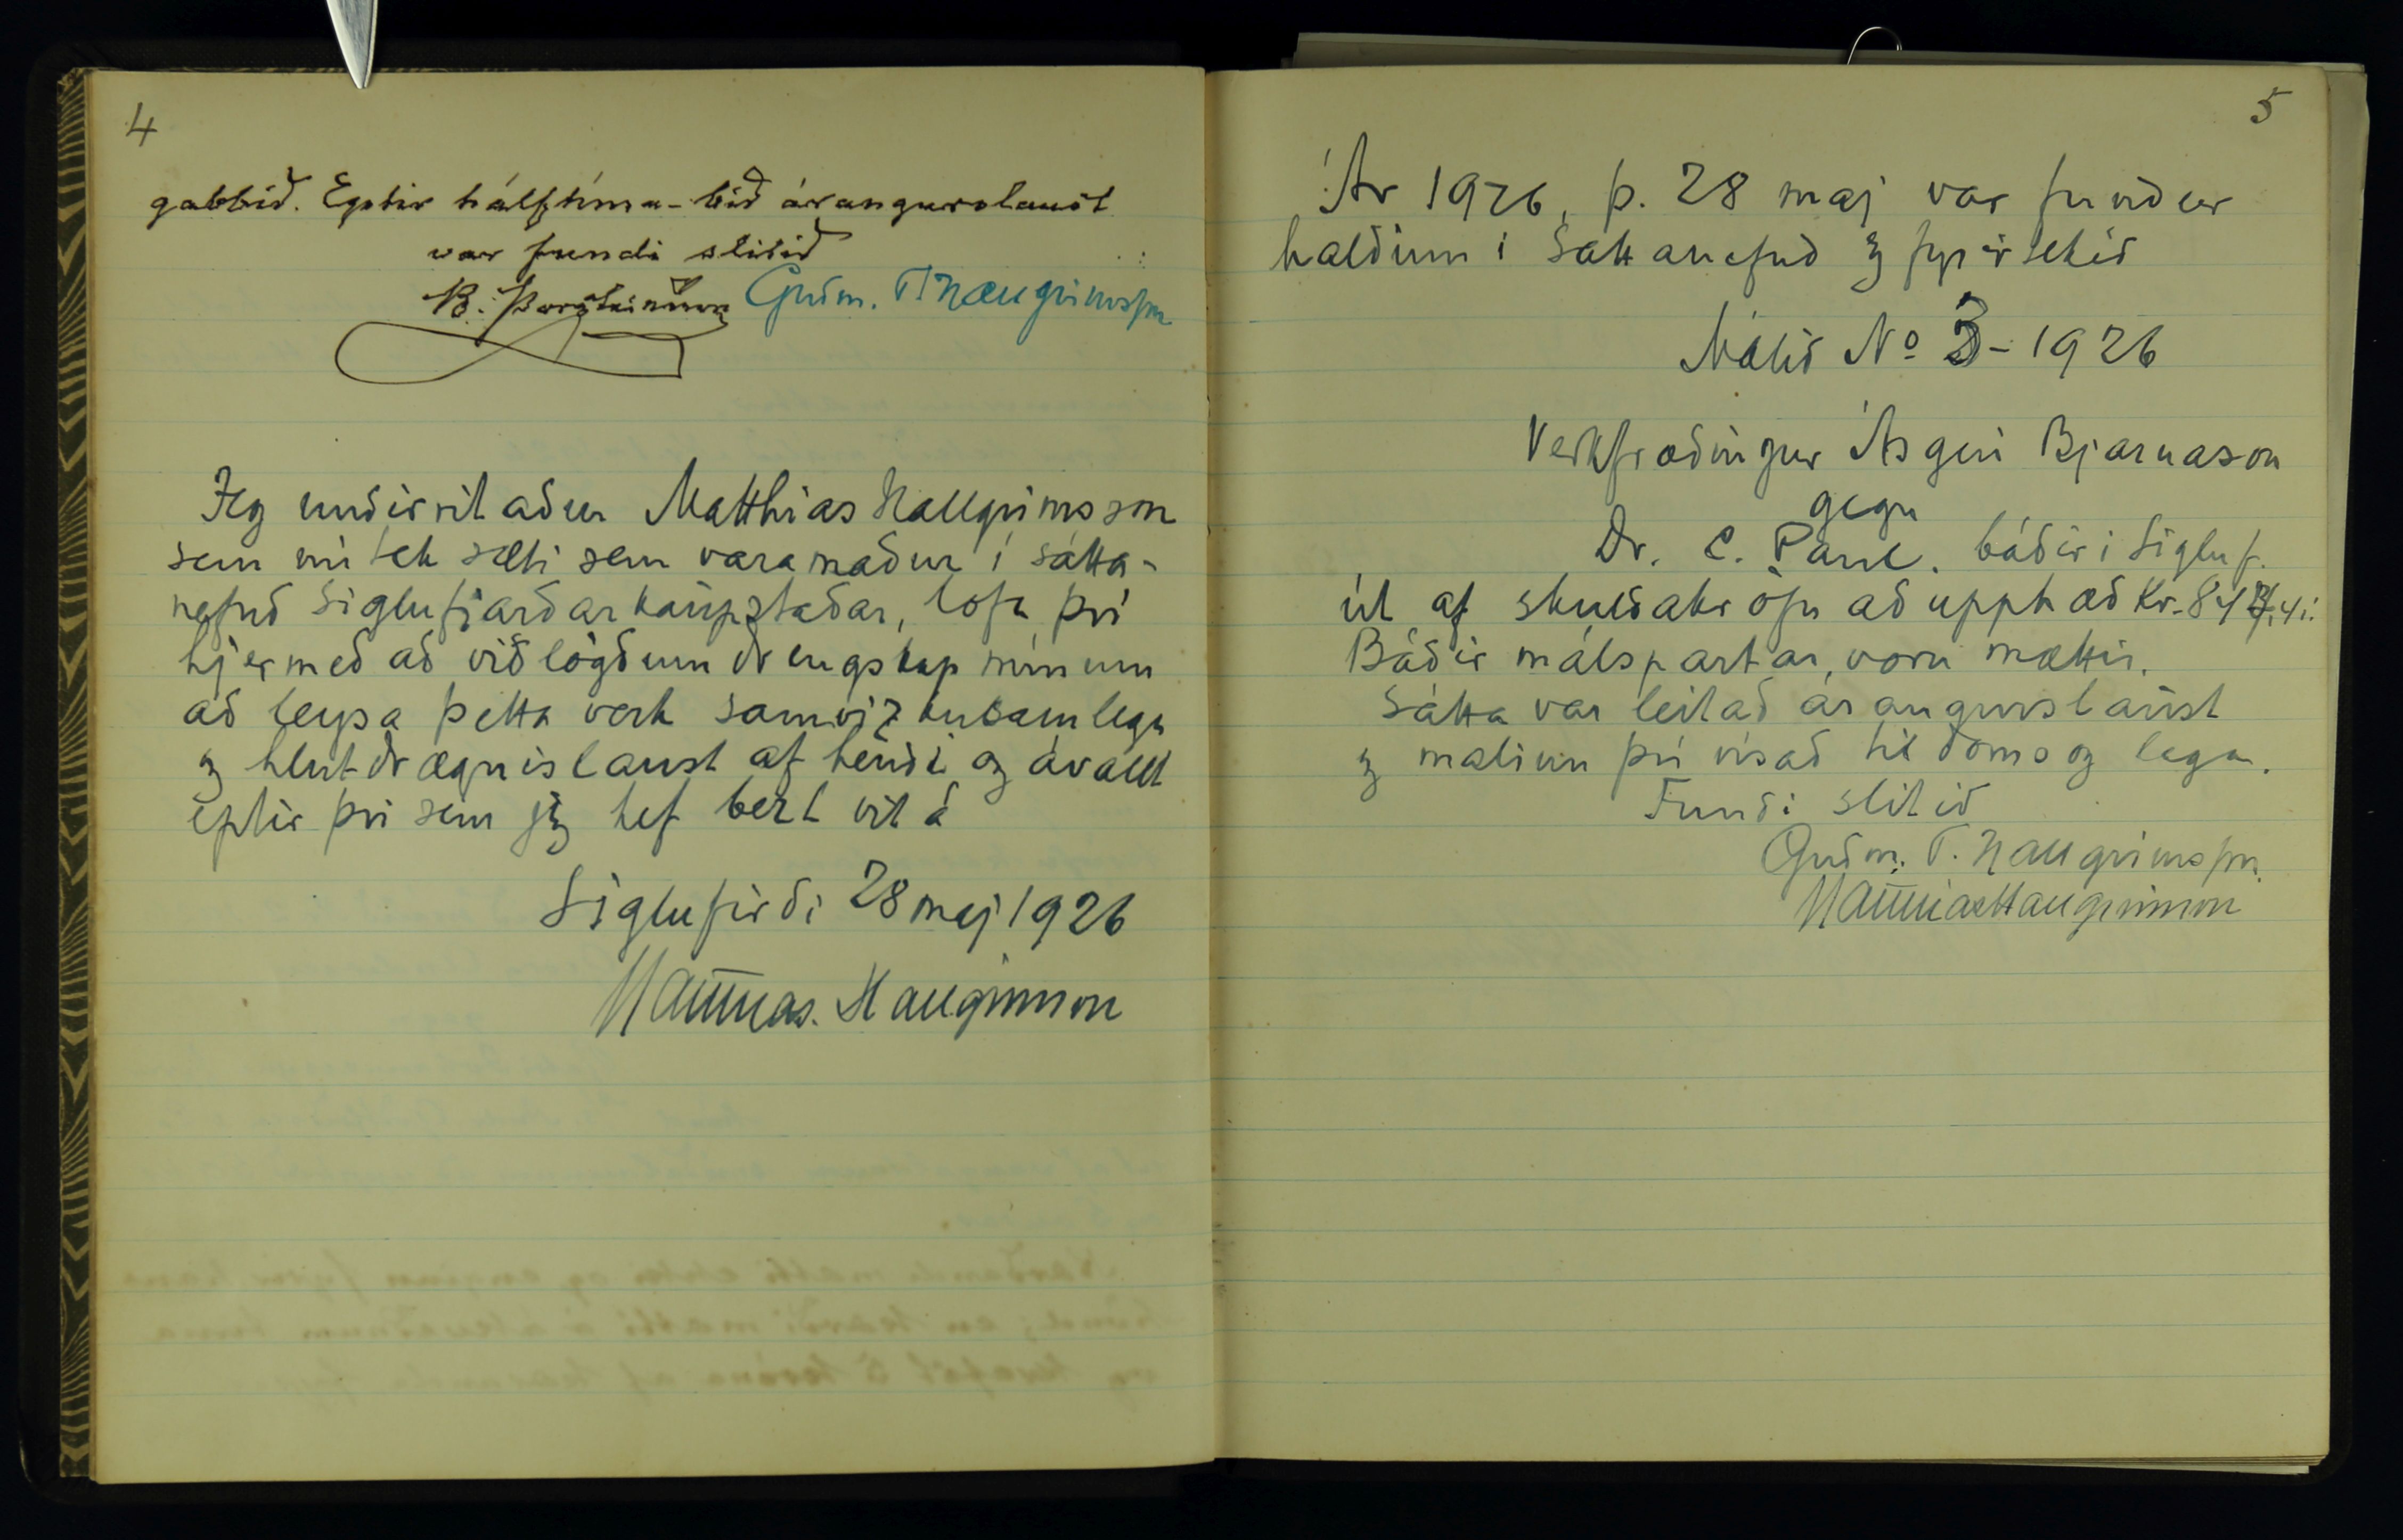 4
gabbið. Eptir hálftíma-bið árangurslaust
var fundi slitið
B. Þorsteinsson Guðm. T. Hallgrimsson
Jeg undirritaður Matthias Hallgrimsson
sem nú tek sæti sem varamaður í sátta-
nefnd Siglufjarðarkaupstaðar, lofa því
hjermeð að viðlögðum drengskap mínum
að leysa þetta verk samvizkusamlega
og hlutdrægnislaust af hendi og ávallt
eptir því sem jeg hef bezt vit á
Siglufirði 28 maj 1926
Matthias. Hallgrimsson
5
Ár 1926, þ. 28 maj var fundur
haldinn i Sáttanefnd og fyrirtekið
Málið No 3-1926
Verkfræðingur Ásgeir Bjarnason
gegn
Dr. C. Paul. báðir i Sigluf.
út af skuldakröfu að upphæð Kr.
Báðir málspartar, voru mættir.
Sátta var leitað árangurslaust
og malinu því vísað til doms og laga.
Fundi slitið
Guðm. T. Hallgrimsson
Matthias Hallgrimsson